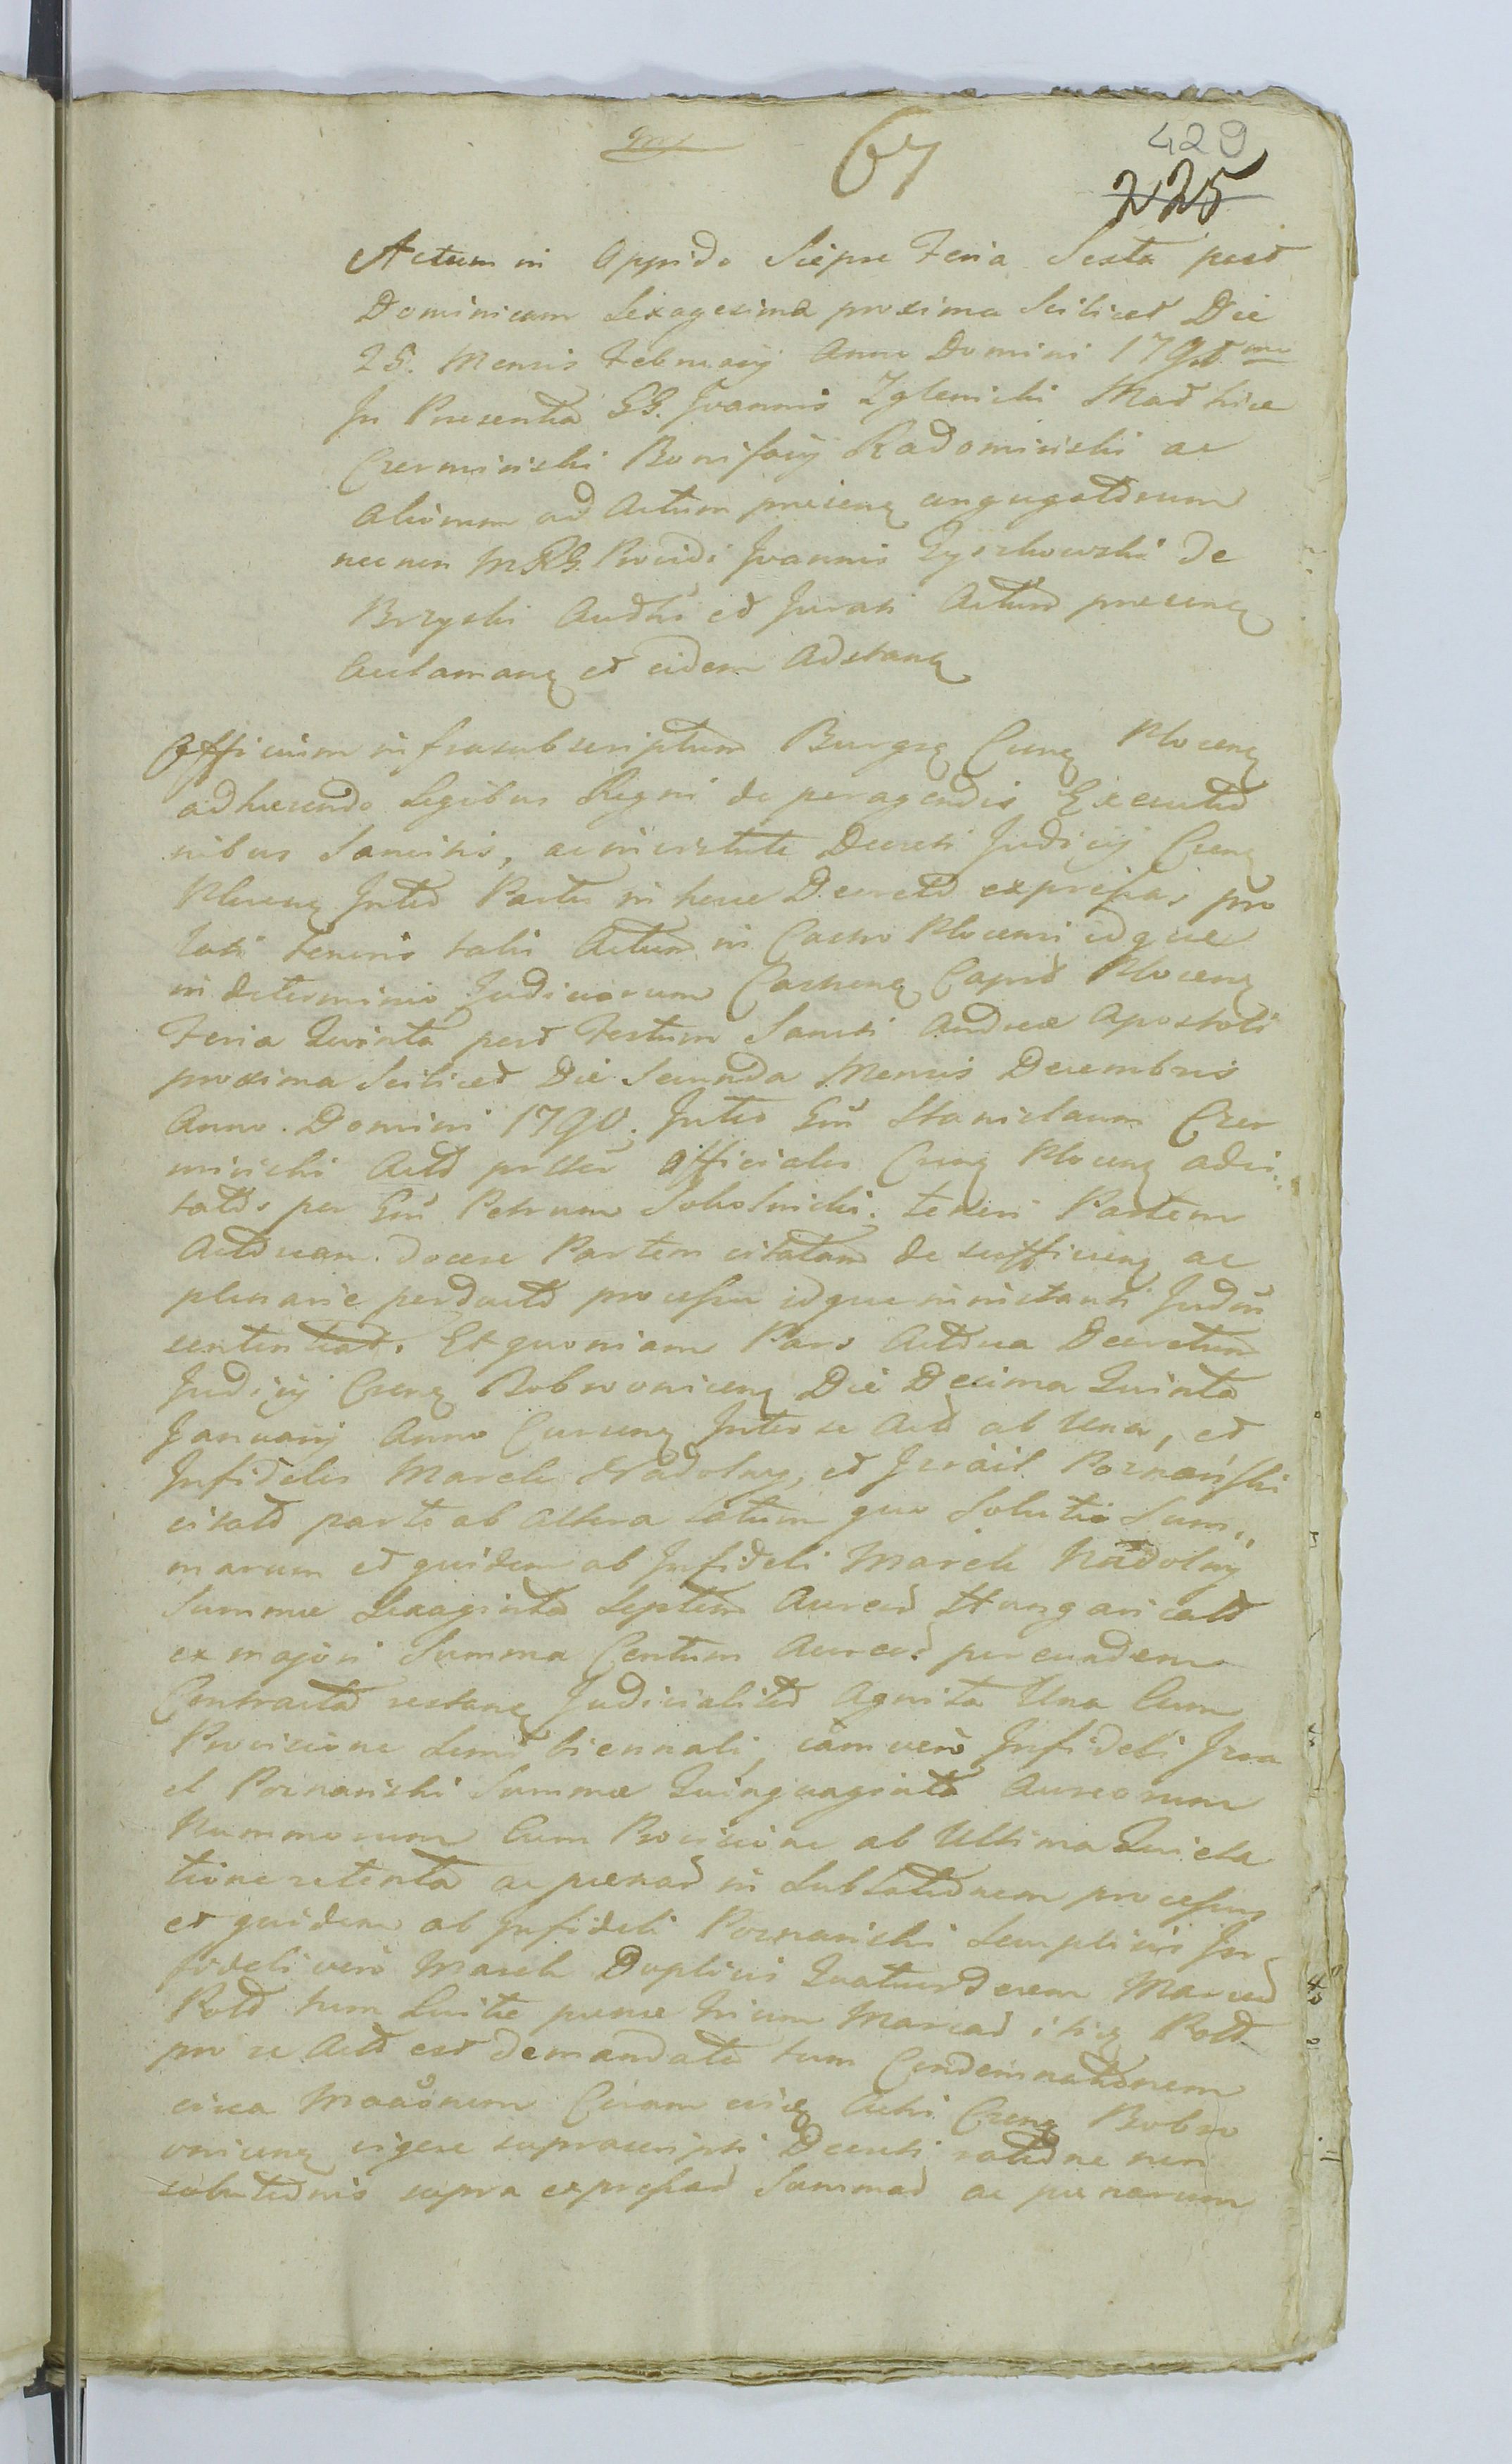 67
429
225
Actum in Oppido Siepre Feria Sexta post
Dominicam Sexagesima proxima Scilicet Die
25. Mensis Februarij Anno Domini 179
In Presentia GG. Joannis Zglenicki Mathiæ
Czerminiski Bonifacij Radominiski ac
aliorum ad Actum presenq congregatorum
nec non Providi Joannis de
Brzyski et Jurati Actum presenq
Acclamanq et eidem Adstanq
Officium infrascubscriptum Burgq Crenq Plocenq
adhærendo Legibus Regni de peragendis Executio
nibus Sancitis, ac in virtute Decreti Judicij Crenq
Plocenq Inter Partes in hocce Decreto expressas pro
lati tenoris talis Actum in Castro Plocensi idque
in determinio Judiciorum Castrenq Capit Plocenq
Feria Quinta post Festum Sancti Andreæ Apostoli
proxima Scilicet Die Secunda Mensis Decembris
Anno Domini 1790. Inter Stanislaum Czer
miniski Officialis Crenq Plocenq adci
tatos per Petrum Sokolnicki. teneri Partem
Actoream docere Partem citatam de sufficienq ac
plenarie perducto processu idque in instanti
sententiat. Et quoniam Pars Actorea Decretum
Judicij Crenq Bobrownicenq Die Decima Quinta
Januarij Anno Currenq Inter se Act ab Una, et
Infideles Marek Nadolny, et Jzrail Poznański
citat parte ab altera latum quo Solutio Sum
marum et quidem ab Infideli Marek Nadolny
Summæ Sexaginta Septem Aureor Hungaricalt
ex majori Summa Centum Aureor per eundem
Contracta restanq Judicialiter Agnita Una Cum
Provisione biennali, iam vero Infideli Jzra
el Poznaniski Summæ Quinquaginta Aureorum
Nummorum Cum Provisione ab Ultima Quieta
tione retenta ac pœnar in Sublationem processus
et quidem ab Infideli Poznaniski Semplicis In
fideli vero Marek Duplicis Quatuordecem Marcar
Pold tum Luitæ pœnæ trium Marcar Pold
pro se Act est demandata tum Condemnationem
circa Crenq Bobro
wnicenq vigore suprascripti Decreti ratione non
solutionis supra expressar Summar ac pœnarum